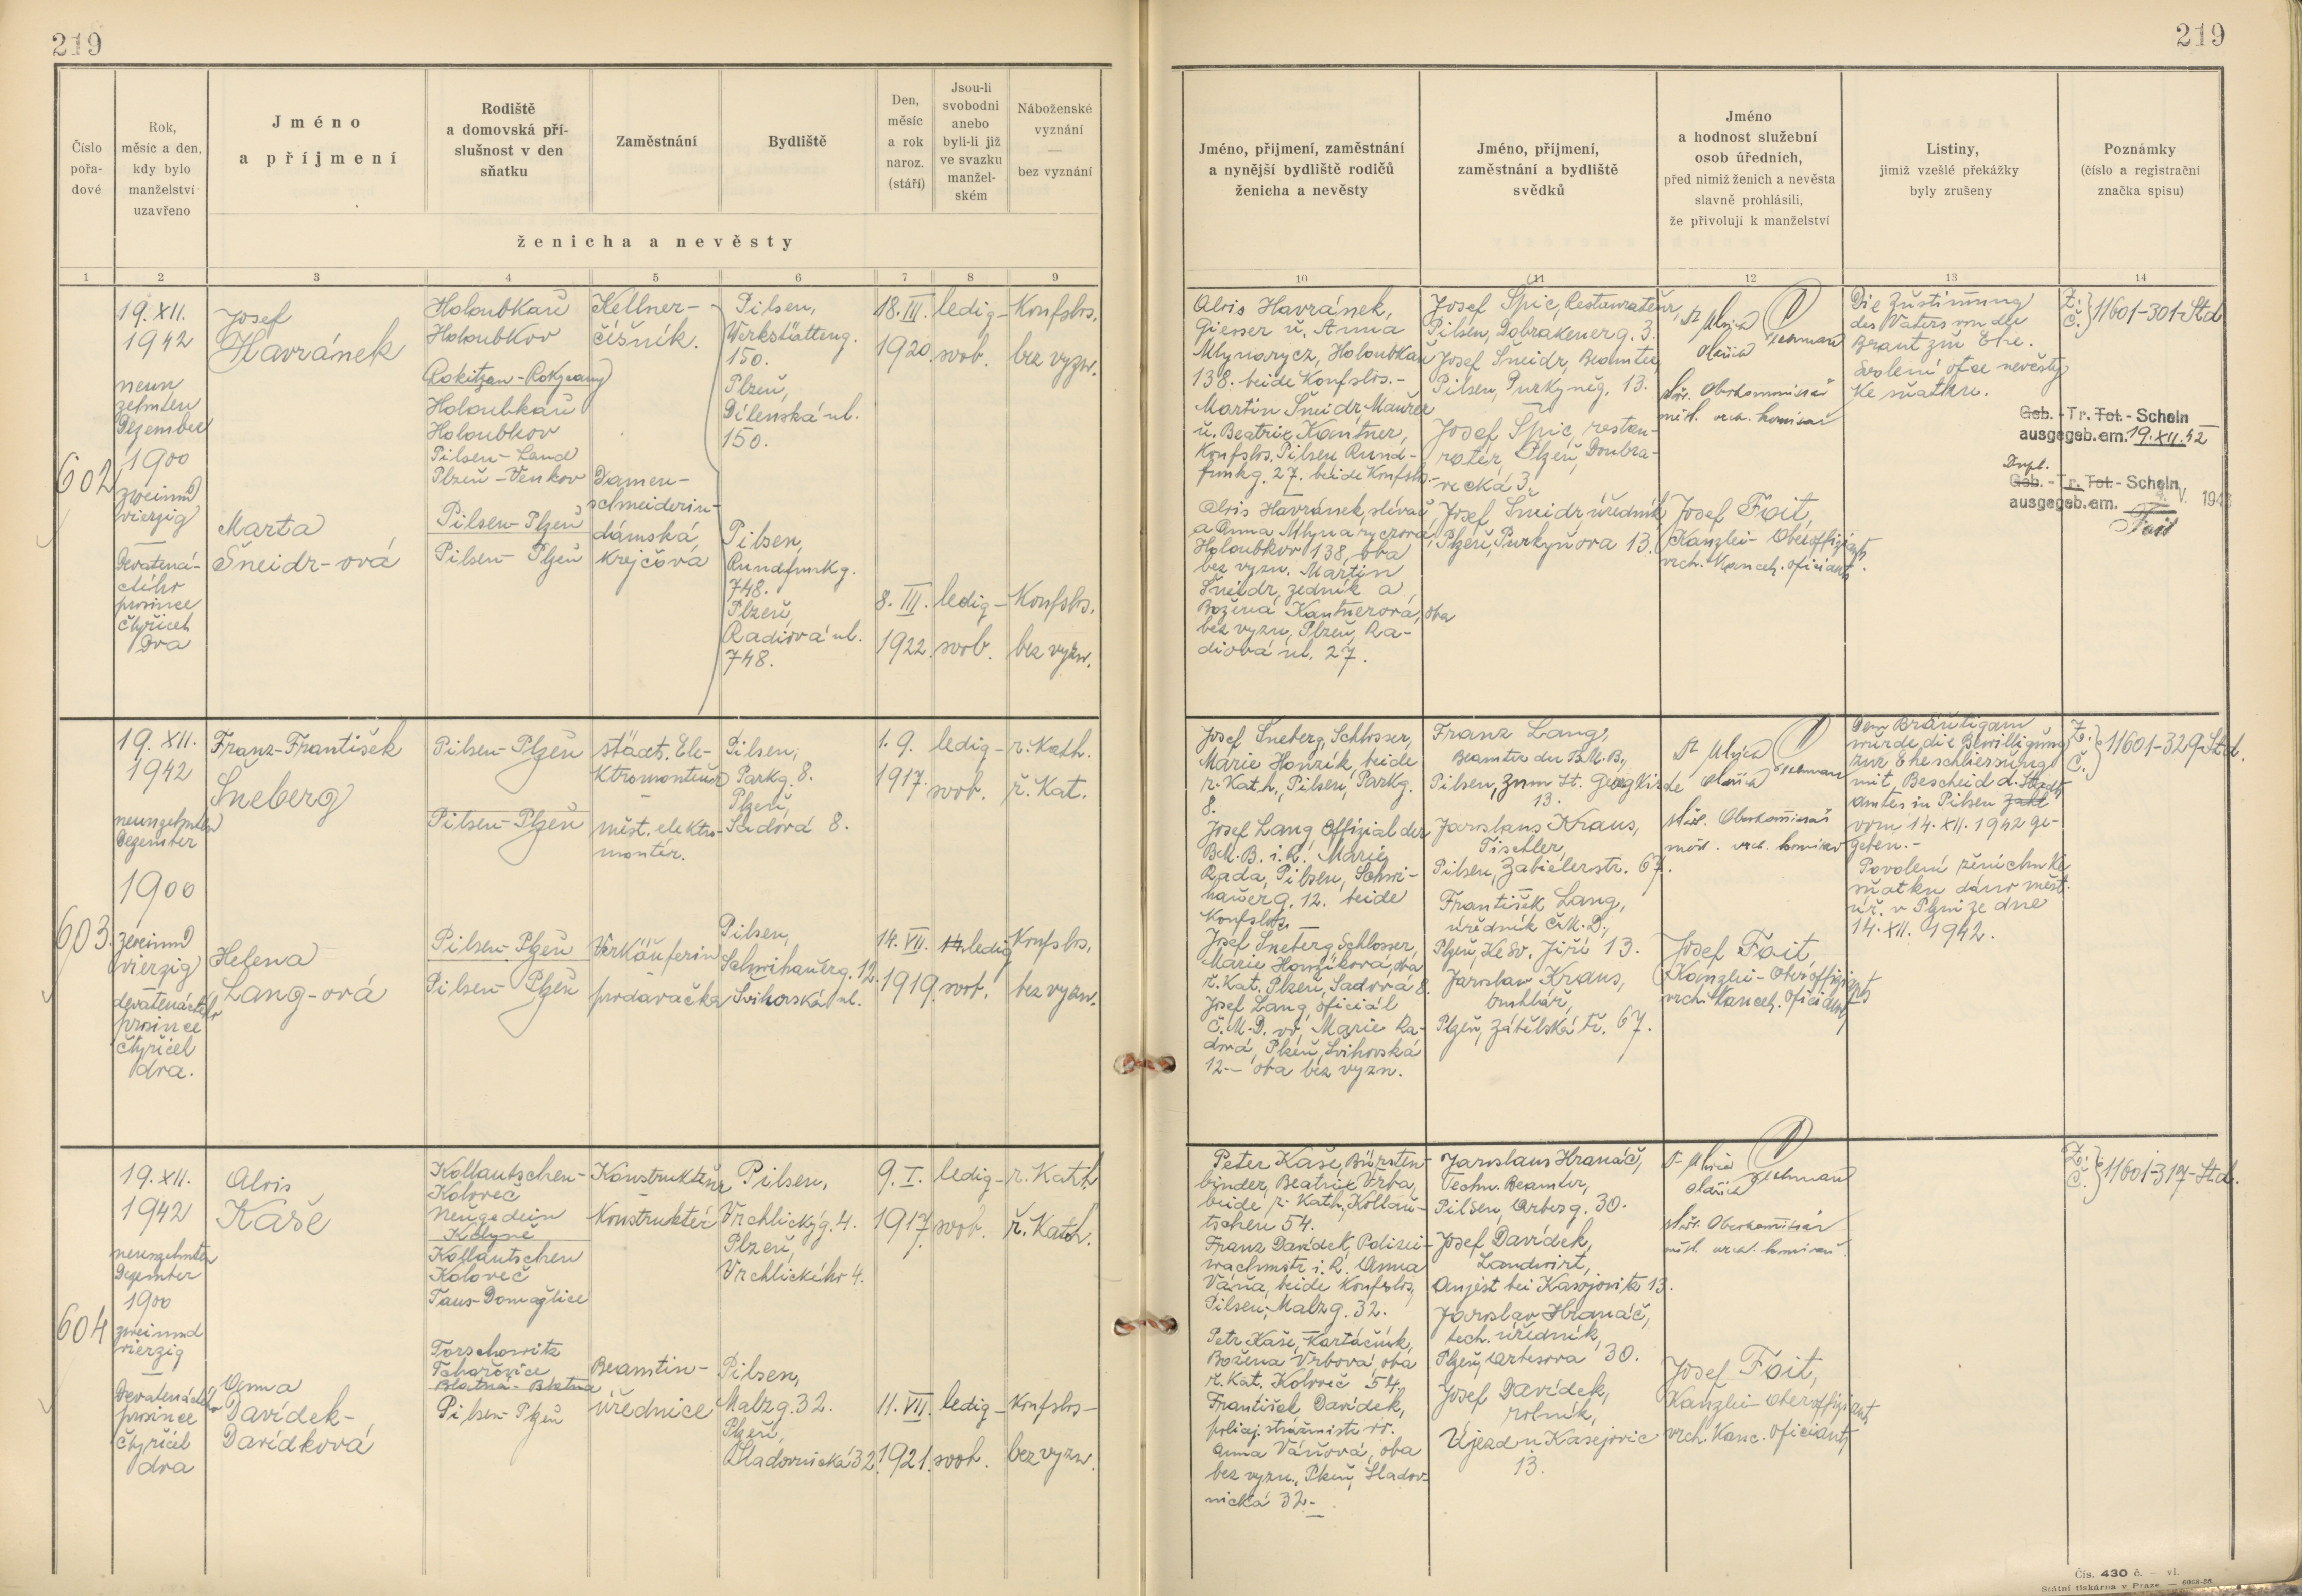 219
219
Číslo pořa-dové
Rok, měsíc a den, kdy bylo manželství uzavřeno
Jméno a příjmení
Rodiště a domovská pří-slušnost v den sňatku
Zaměstnání
Bydliště
Den, měsíc a rok naroz. (stáří)
Jsou-li svobodni anebo byli-li již ve svazku manžel-ském
Náboženské vyznání — bez vyznání
ženicha a nevěsty
1 2 3 4 5 6 7 8 9
Jméno, příjmení, zaměstnání a nynější bydliště rodičů ženicha a nevěsty
Jméno, příjmení, zaměstnání a bydliště svědků
Jméno a hodnost služební osob úředních, před nimiž ženich a nevěsta slavně prohlásili, že přivolují k manželství
Listiny, jimiž vzešlé překážky byly zrušeny
Poznámky (číslo a registrační značka spisu)
10 11 12 13 14
602
19. XII.
1942
neun
zehnten
Dezember
1900
zweiund
vierzig
—
Devatená-
ctého
prosince
čtyřicet
dva
Josef
Havránek
Marta
Šneidr-ová
Holoubkau
Holoubkov
(Rokitzan-Rokycany)
Holoubkau
Holoubkov
Pilsen-Land
Plzeň-Venkov
Pilsen-Plzeň
Pilsen-Plzeň
Kellner-
číšník.
Damen-
schneiderin-
dámská
krejčová
Pilsen,
Werkstätteng.
150.
Plzeň,
Dílenská ul.
150.
Pilsen,
Rundfunkg.
748.
Plzeň,
Radiová ul.
748.
18. III.
1920.
8. III.
1922.
ledig-
svob.
ledig-
svob.
Konfslos.
bez vyzn.
Konfslos.
bez vyzn.
Alois Havránek,
Giesser u. Anna
Mlynarycz, Holoubkau
138. beide Konfslos.-
Martin Šneidr, Maurer
u. Beatrix Kantner,
Konfslos. Pilsen Rund-
funkg. 27. beide Konfslos.-
Alois Havránek, slévač
a Anna Mlynaryczová,
Holoubkov 138, oba
bez vyzn. Martin
Šneidr, zedník a
Božena Kantnerová, oba
bez vyzn, Plzeň, Ra-
diová ul. 27.
Josef Špic, Restaurateur,
Pilsen, Dobrakenerg. 3.
Josef Šneidr, Beamter,
Pilsen, Purkyněg. 13.
Josef Špic, restau-
ratér, Plzeň, Doubra-
vecká 3.
Josef Šneidr úředník
Plzeň, Purkyňova 13.
Oberkommissär
Josef Foit,
Kanzlei-Oberoffiziant
vrch. kancel. oficiant.
Die Zustimmung
des Vaters von der
Braut zur Ehe.
Svolení otce nevěsty
ke sňatku.
Z.
Č. } 11601-301-Std
Geb.-Tr.-Tot.-Schein
ausgegeb. am. 19. XII. 42
Dupl.
Geb.-Tr.-Tot.-Schein
ausgegeb. am.
Foit
603.
19. XII.
1942
neunzehnten
Dezember
1900
zweiund
vierzig
—
devatenáctého
prosince
čtyřicet
dva.
Franz-František
Šneberg
Helena
Lang-ová
Pilsen-Plzeň
Pilsen-Plzeň
Pilsen-Plzeň
Pilsen-Plzeň
städt. Ele-
ktromonteur
—
měst. elektro-
montér.
Verkäuferin
prodavačka
Pilsen,
Parkg. 8.
Plzeň,
Sadová 8.
Pilsen,
Schwihauerg. 12.
Švihovská ul.
1. 9.
1917.
14. VII.
1919.
ledig-
svob.
ledig
svob.
r. Kath.
ř. Kat.
Konfslos.
bez vyzn.
Josef Šneberg, Schlosser,
Marie Honzík, beide
r. Kath., Pilsen, Parkg.
8.
Josef Lang, Offizial der
B.M.B. i. R. Marie
Rada, Pilsen, Schwi-
hauerg. 12. beide
Konfslos.
Josef Šneberg Schlosser,
Marie Honzíková, oba
ř. Kat. Plzeň, Sadová 8.
Josef Lang, oficiál
Č.M.D. vv. Marie Ra-
dová, Plzeň, Švihovská
12.- oba bez vyzn.
Franz Lang,
Beamter der B.M.B.,
Pilsen, Zum St. Georg
13.
Jaroslaus Kraus,
Tischler,
Pilsen, Zabielerstr. 67.
František Lang,
úředník Č.M.D.,
Plzeň, Ke Sv. Jiří 13.
Jaroslav Kraus,
truhlář,
Plzeň, Zábělská tř. 67.
Josef Foit,
Kanzlei-Oberoffiziant
vrch. kancel. oficiant
Dem Bräutigam
wurde die Bewilligung
zur Eheschliessung
mit Bescheid d. Stadt
amtes in Pilsen
vom 14. XII. 1942 ge-
geben.-
Povolení ženichu ke
sňatku dáno měst.
úř. v Plzni ze dne
14. XII. 1942.
Z.
Č. } 11601-329-Std.
604
19. XII.
1942
neunzehnten
Dezember
1900
zweiund
vierzig
—
Devatenáctého
prosince
čtyřicet
dva
Alois
Káše
Anna
Davídek-
Davídková
Kollautschen-
Koloveč
Neugedein
Kdyně
Kollautschen
Koloveč
Taus-Domažlice
Torschowitz
Tchořovice
Blatná-Blatna
Pilsen-Plzeň
Konstrukteur
Konstruktér
Beamtin-
úřednice
Pilsen,
Vrchlickýg. 4.
Plzeň,
Vrchlického 4.
Pilsen,
Malzg. 32.
Plzeň,
Sladovnická 32.
9. I.
1917
11. VII.
1921.
ledig-
svob.
ledig-
svob.
r. Kath
ř. Kath.
Konfslos-
bez vyzn.
Peter Kaše, Bürsten-
binder, Beatrix Vrba,
beide r. Kath., Kollau-
tschen 54.
Franz Davídek, Polizei-
wachmstr. i. R. Anna
Váňa, beide Konfslos,
Pilsen, Malzg. 32.
Petr Kaše, Kartáčník,
Božena Vrbová, oba
ř. Kat. Koloveč 54.
František Davídek,
policej. strážmistr vv.
Anna Váňová, oba
bez vyzn., Plzeň, Sladov-
nická 32.-
Jaroslaus Hranáč,
Techn. Beamter,
Pilsen, Arbesg. 30.
Josef Davídek,
Landwirt,
Aujest bei Kasejowitz 13.
Jaroslav Hranáč,
tech. úředník,
Plzeň, Arbesova 30.
Josef Davídek,
rolník,
Újezd u Kasejovic
13.
Oberkommissär
Josef Foit,
Kanzlei-Oberoffiziant
vrch. Kanc. oficiant
Z.
Č. } 11601-317-Std.
Čís. 430 č. — vl.
Státní tiskárna v Praze. — 6068-36